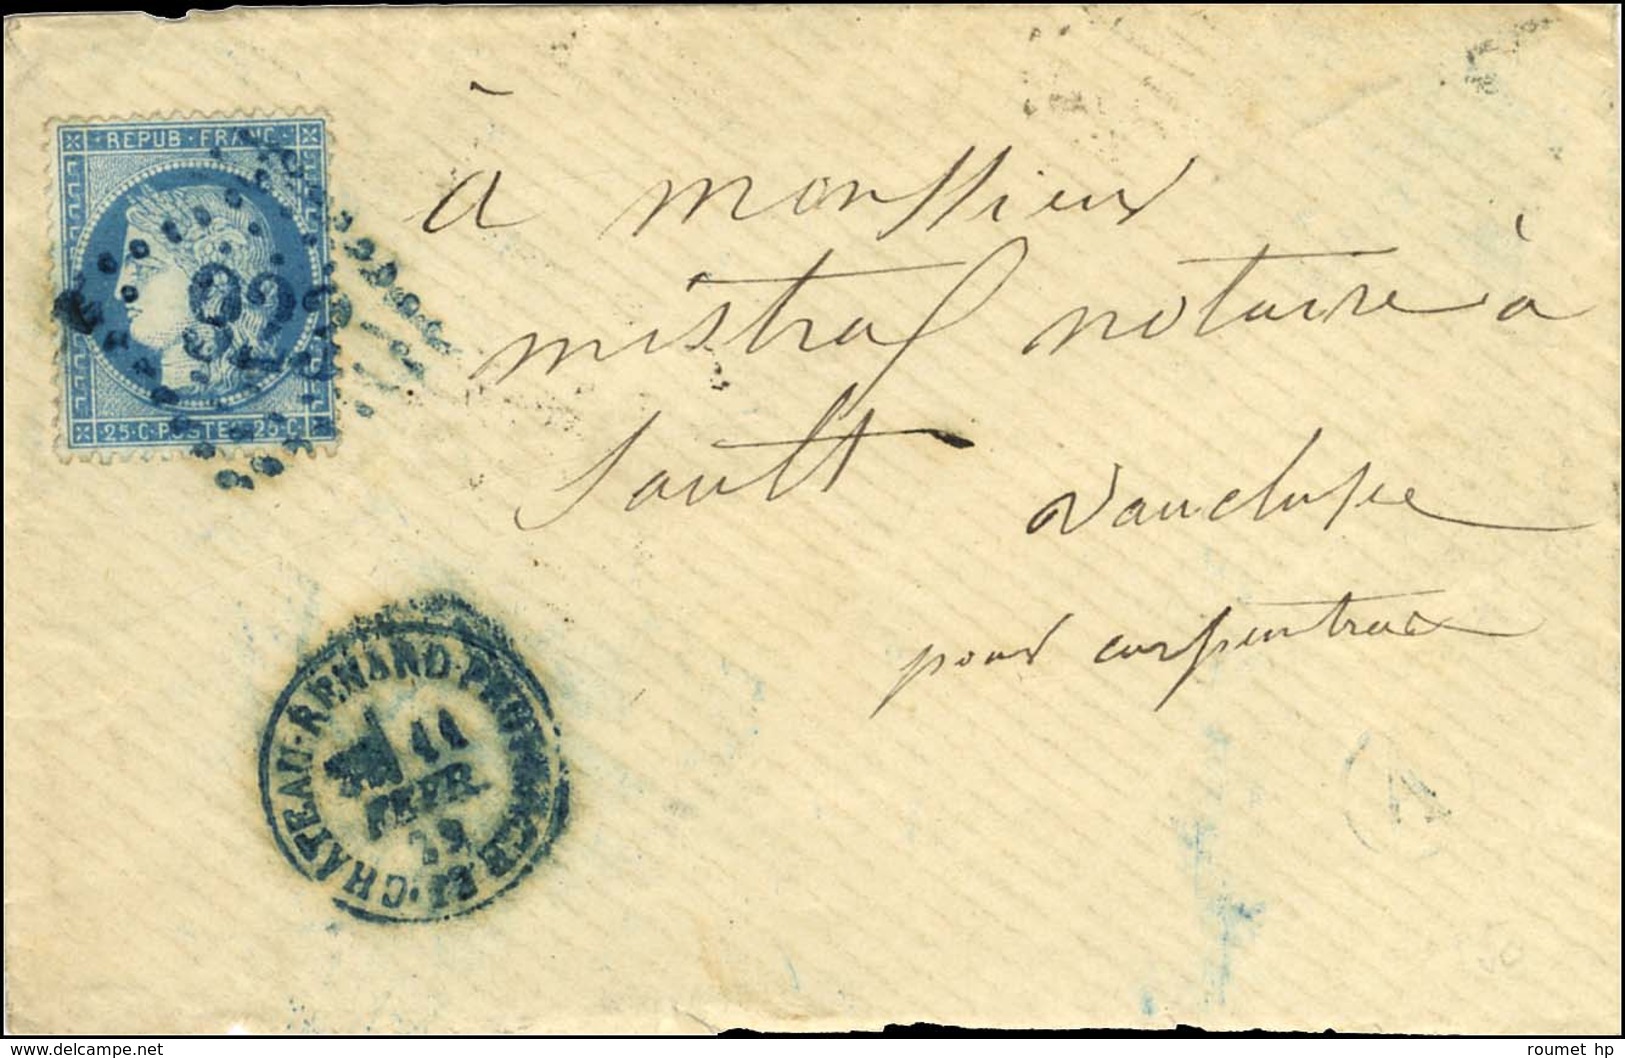 REPUB · FRANC ·
25·C·POSTES·25·C
à monsieur
mistral notaire à
Sault
Vaucluse
pour carpentras
CHÂTEAU-RENARD-PROVENCE
11
FEVR.
A
www.delcampe.net
roumet hp